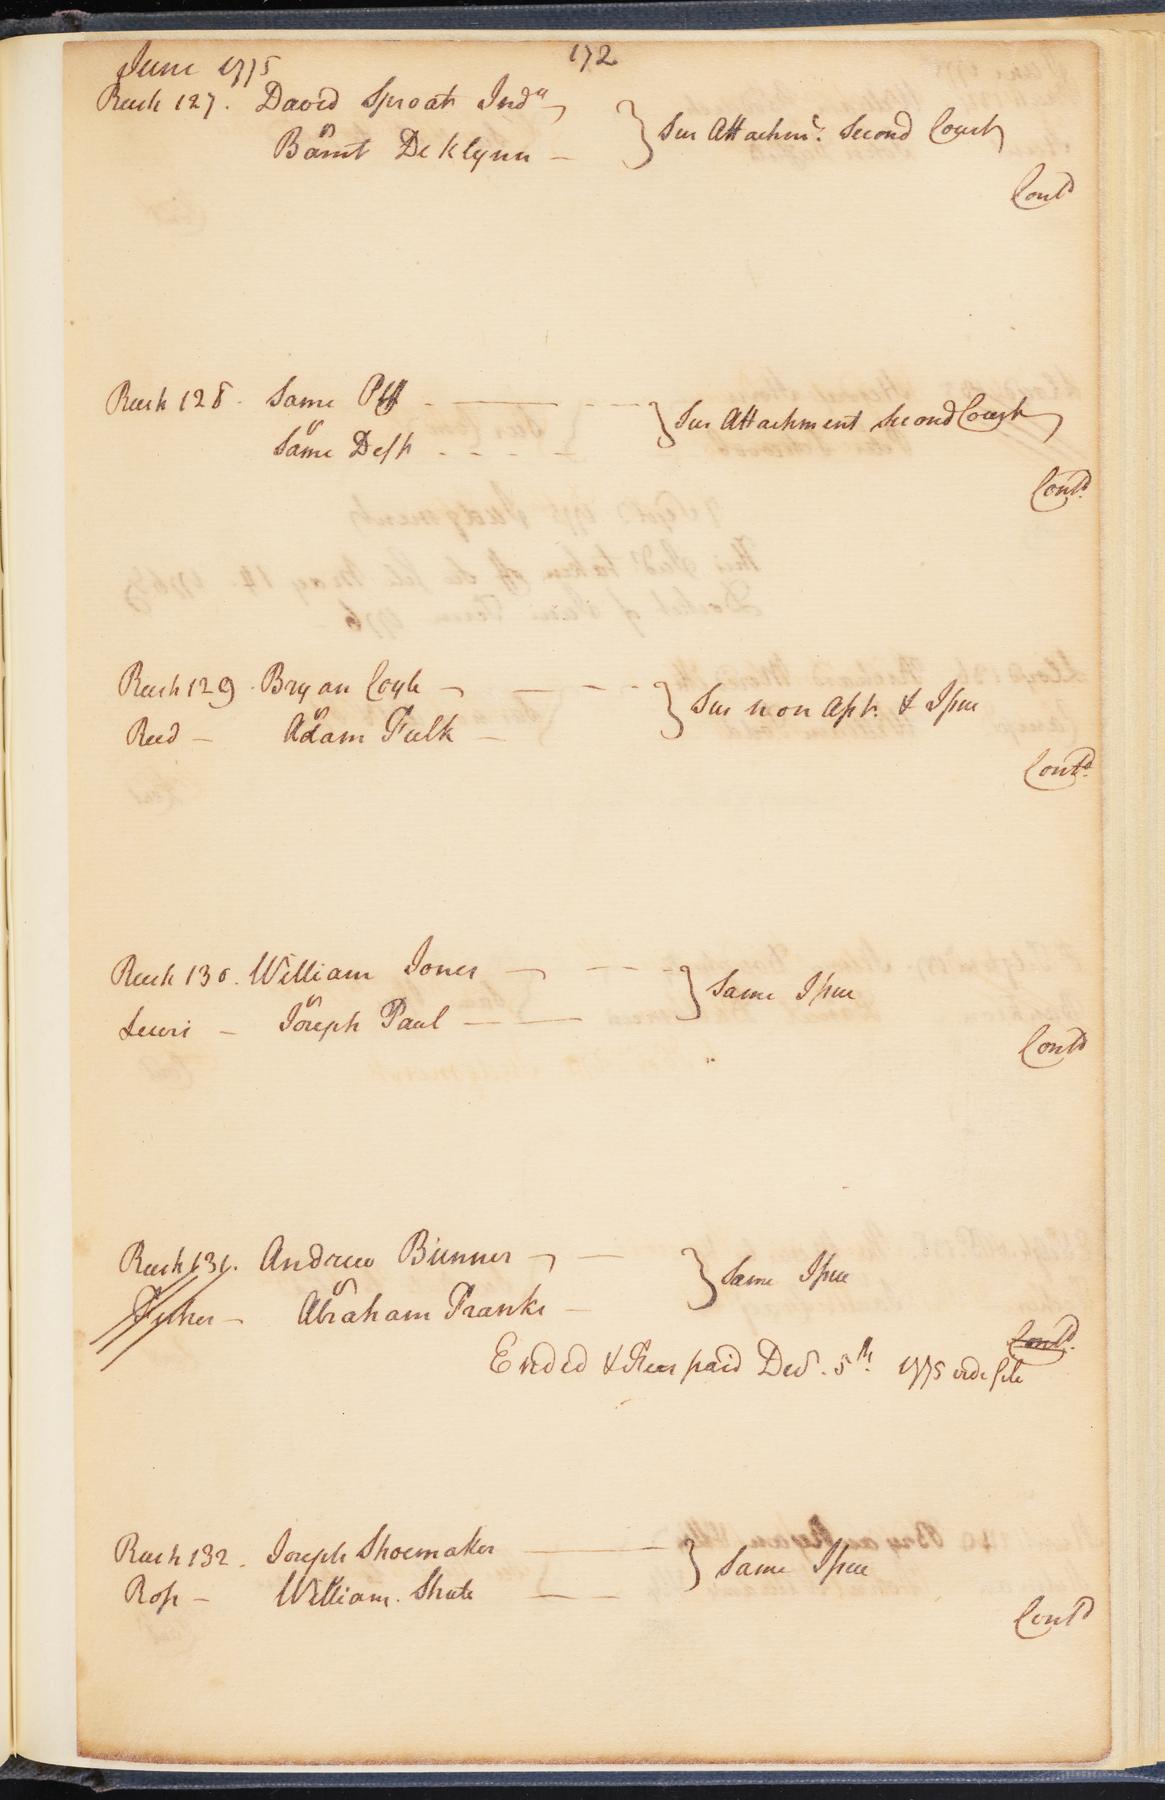 June 1775
172
Rush 127. David Sproat Ind.ee
vs
Barnt DeKlynn —
} Sur Attachmt. Second Court
Contd
Rush 128. Same Plff
vs
Same Deft
} Sur Attachment Second Court
Contd.
Rush 129. Bryan Coyle
vs
Reed — Adam Fulk —
} Sur non Ast. & Issue
Contd.
Rush 130. William Jones
vs
Lewis — Joseph Paul —
} Same Issue
Contd
Rush 131. Andrew Bunner
vs
Fisher — Abraham Franks —
} Same Issue
Contd.
Ended & Fees paid Decr. 5th. 1775 vide file
Rush 132. Joseph Shoemaker
vs
Ross — William Shute
} Same Issue
Contd